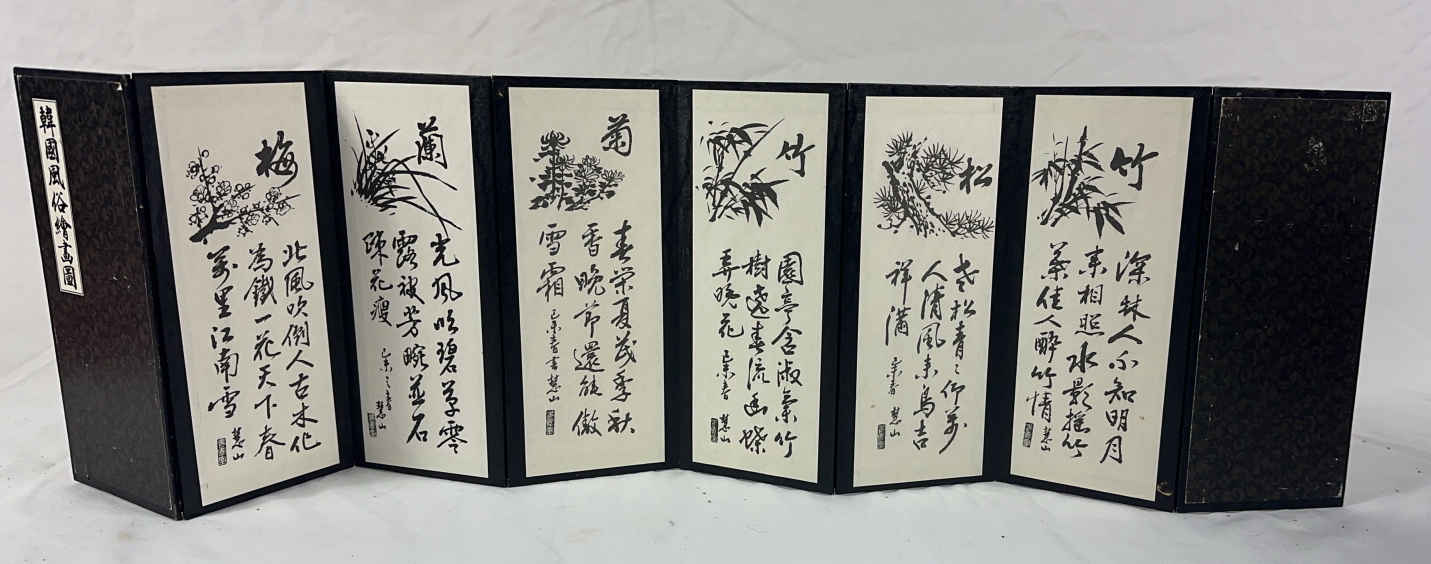 韓國風俗繪畫圖
梅
北風吹倒人古木化
為鐵一花天下春
萬里江南雪
慧山
蘭
光風吹碧草零
露被芳畹並石
疎花瘦
己未之春
慧山
菊
春榮夏茂季秋
香晚節還能傲
雪霜
己未春書慧山
竹
園亭含淑氣竹
樹遶春流幽蝶
弄晚花
己未春
慧山
松
老松青〻仰万
人清風来烏吉
祥滿
己未春
慧山
竹
深林人不知明月
来相照水影搖竹
葉佳人醉竹情
慧山